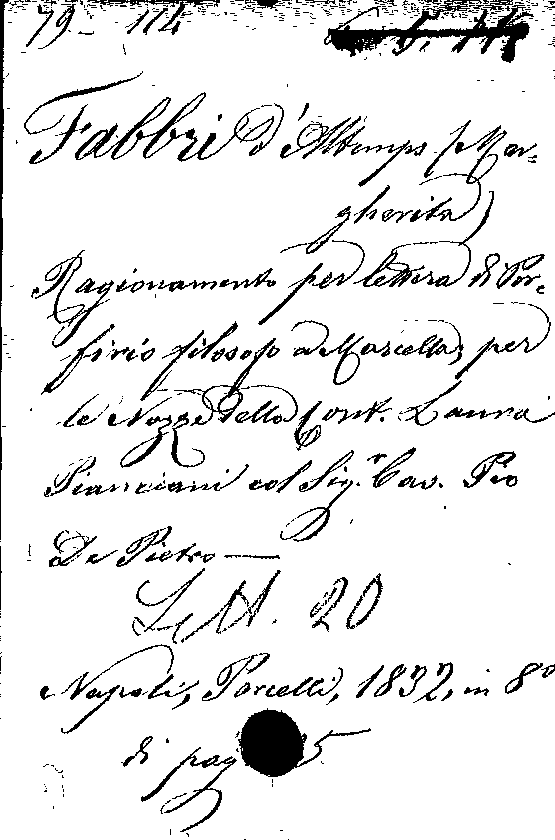 79 - 114
Fabbri d'Altemps (Mar-
gherita)
Ragionamento per lettera di Por-
firio filosofo a Marcella, per
le Nozze della Cont. Laura
Pianciani col Sig.r Cav. Pio
De Pietro —
Lett. 20
Napoli, Porcelli, 1832, in 8°
di pag 5